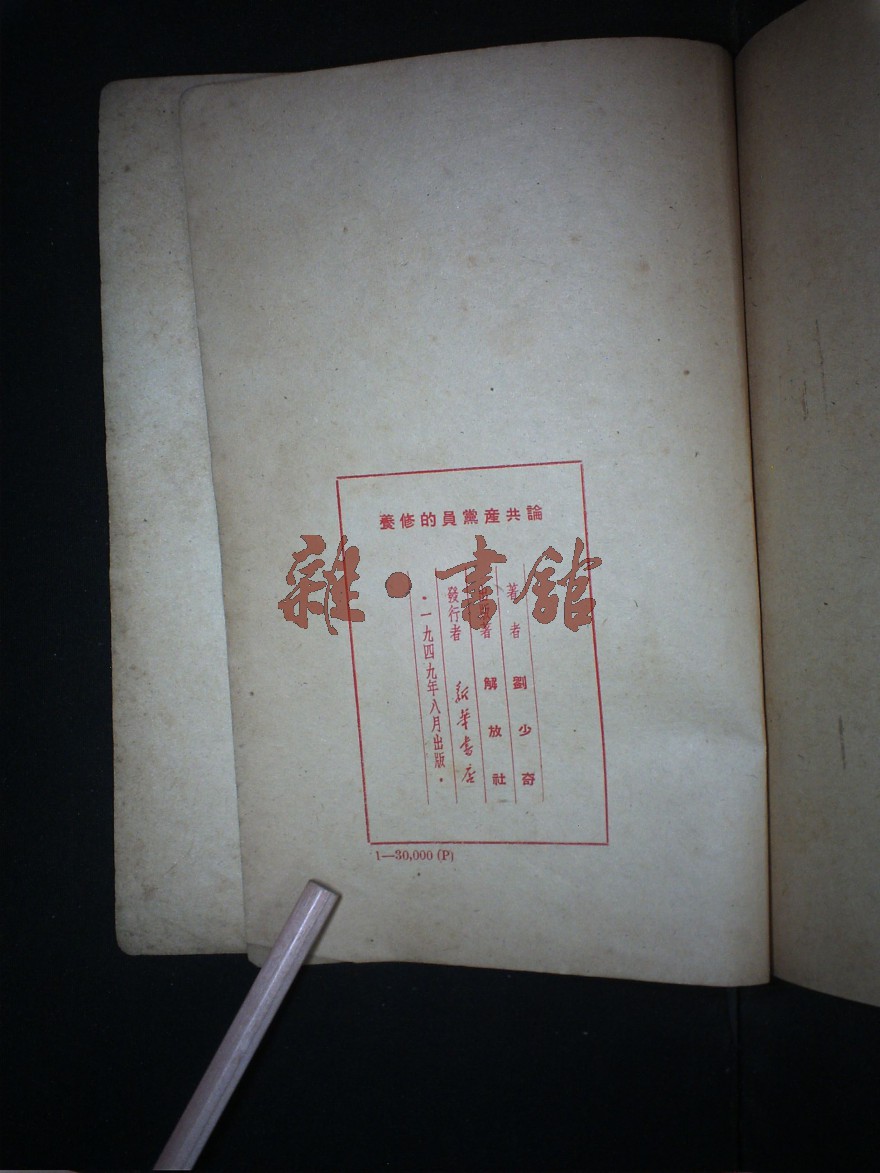 論共産黨員的修養
著者 劉少奇
出版者 解放社
發行者 新華書店
·一九四九年八月出版·
1—30,000 (P)
雜·書館